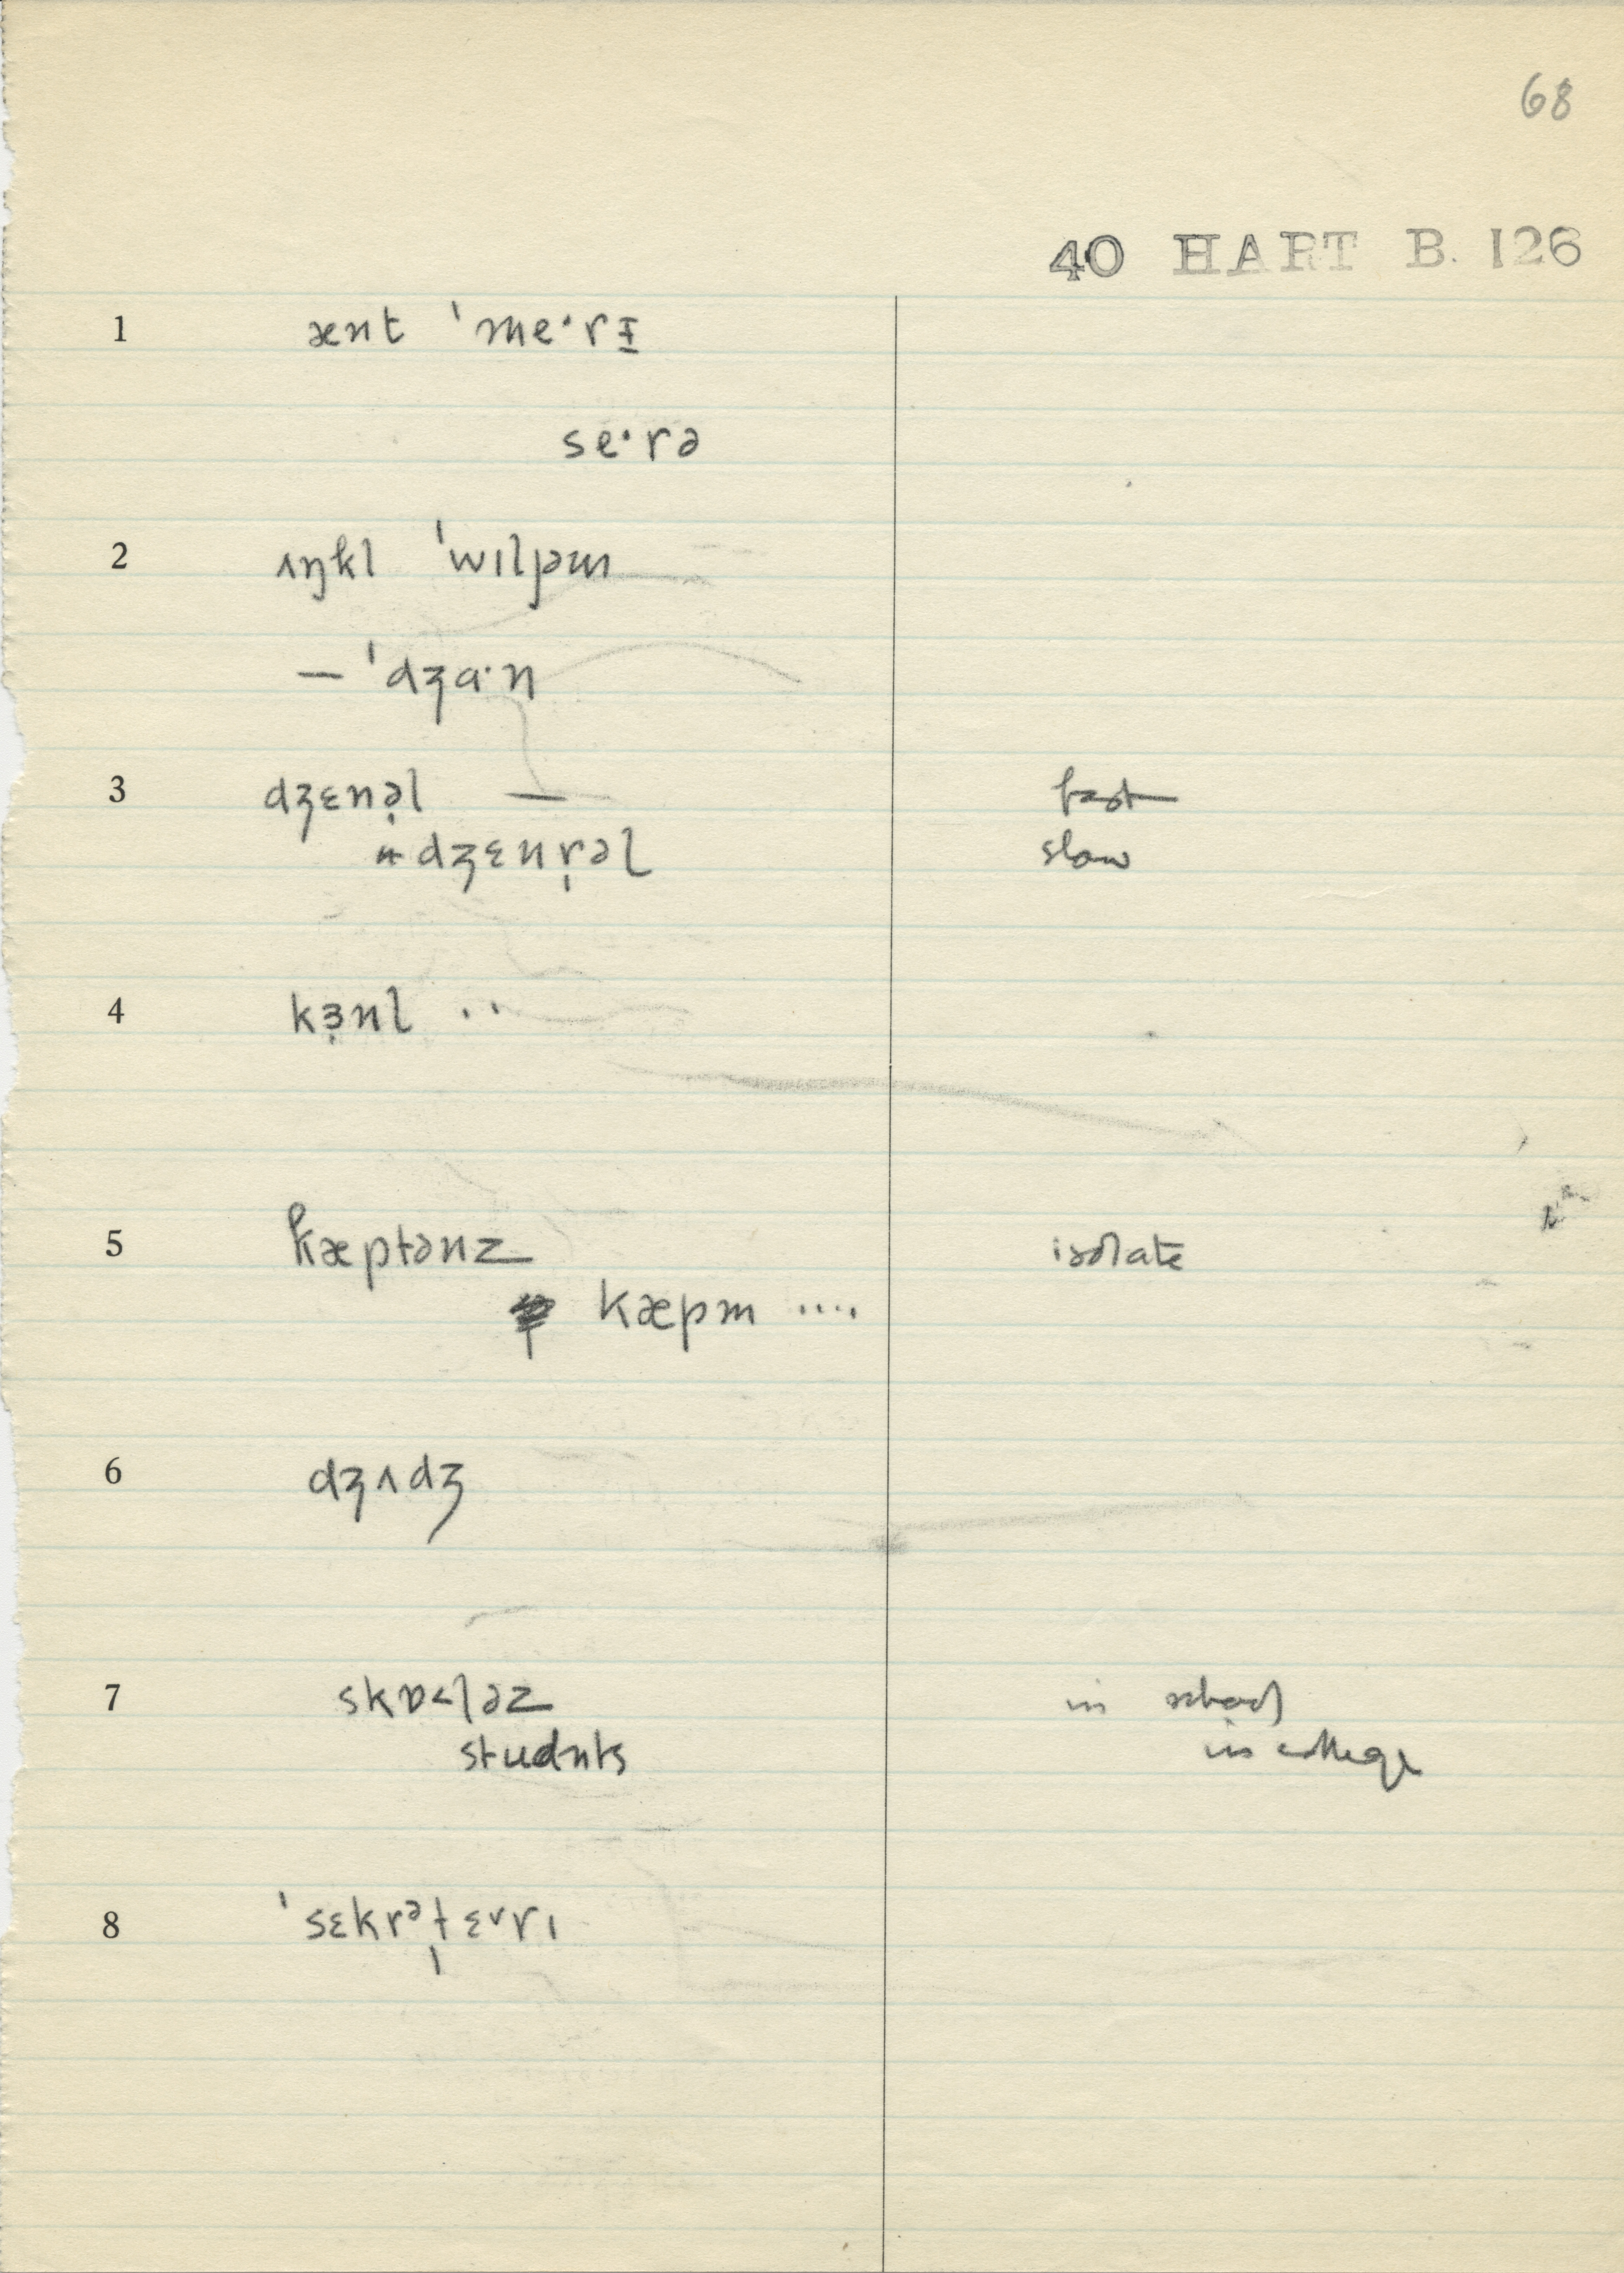 68
40 HART B. 126
1 ænt ˈme·rɪ̵
se·rə
2 ʌŋkl ˈwɪljəm
— ˈdʒɑ·n
3 dʒɛnə̣l — fast
dʒɛnr̩əl slow
4 kɜ̣nl ··
5 kæptənz isolate
kæpm ····
6 dʒʌdʒ
7 skɒ˂ləz in school
studnts in college
8 ˈsɛkrᵊt̩ɛ˅rɪ